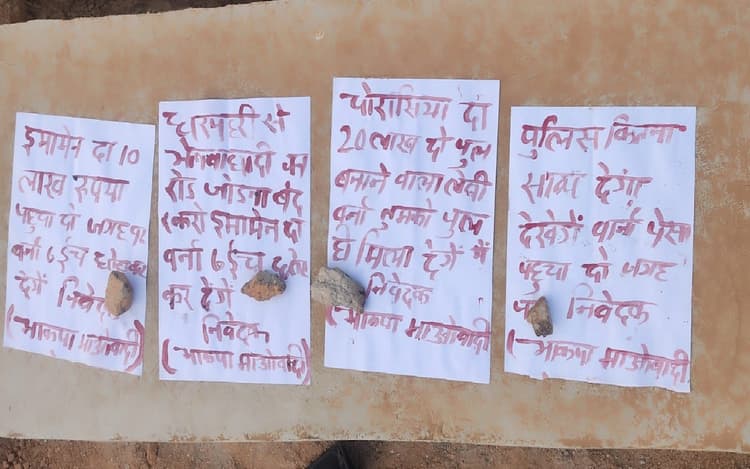 इमामेन दा 10
लाख रुपया
पहुचा दो जगह पर
वर्ना 6 ईंच छोटकर
देगें निवेदक
(भाकपा माओवादी)
से
रोड जोडना बंद
करो इमामेन दो
वर्ना 6 ईंच
कर देगें
निवेदक
(भाकपा माओवादी)
चोरासिया दा
20 लाख दो पुल
बनाने वाला लेवी
वर्ना तुमको पुल
ही मिला देगें में
निवेदक
(भाकपा माओवादी)
पुलिस कितना
साथ देगा
देखेगें वर्ना पैसा
पहुचा दो जगह
निवेदक
(भाकपा माओवादी)